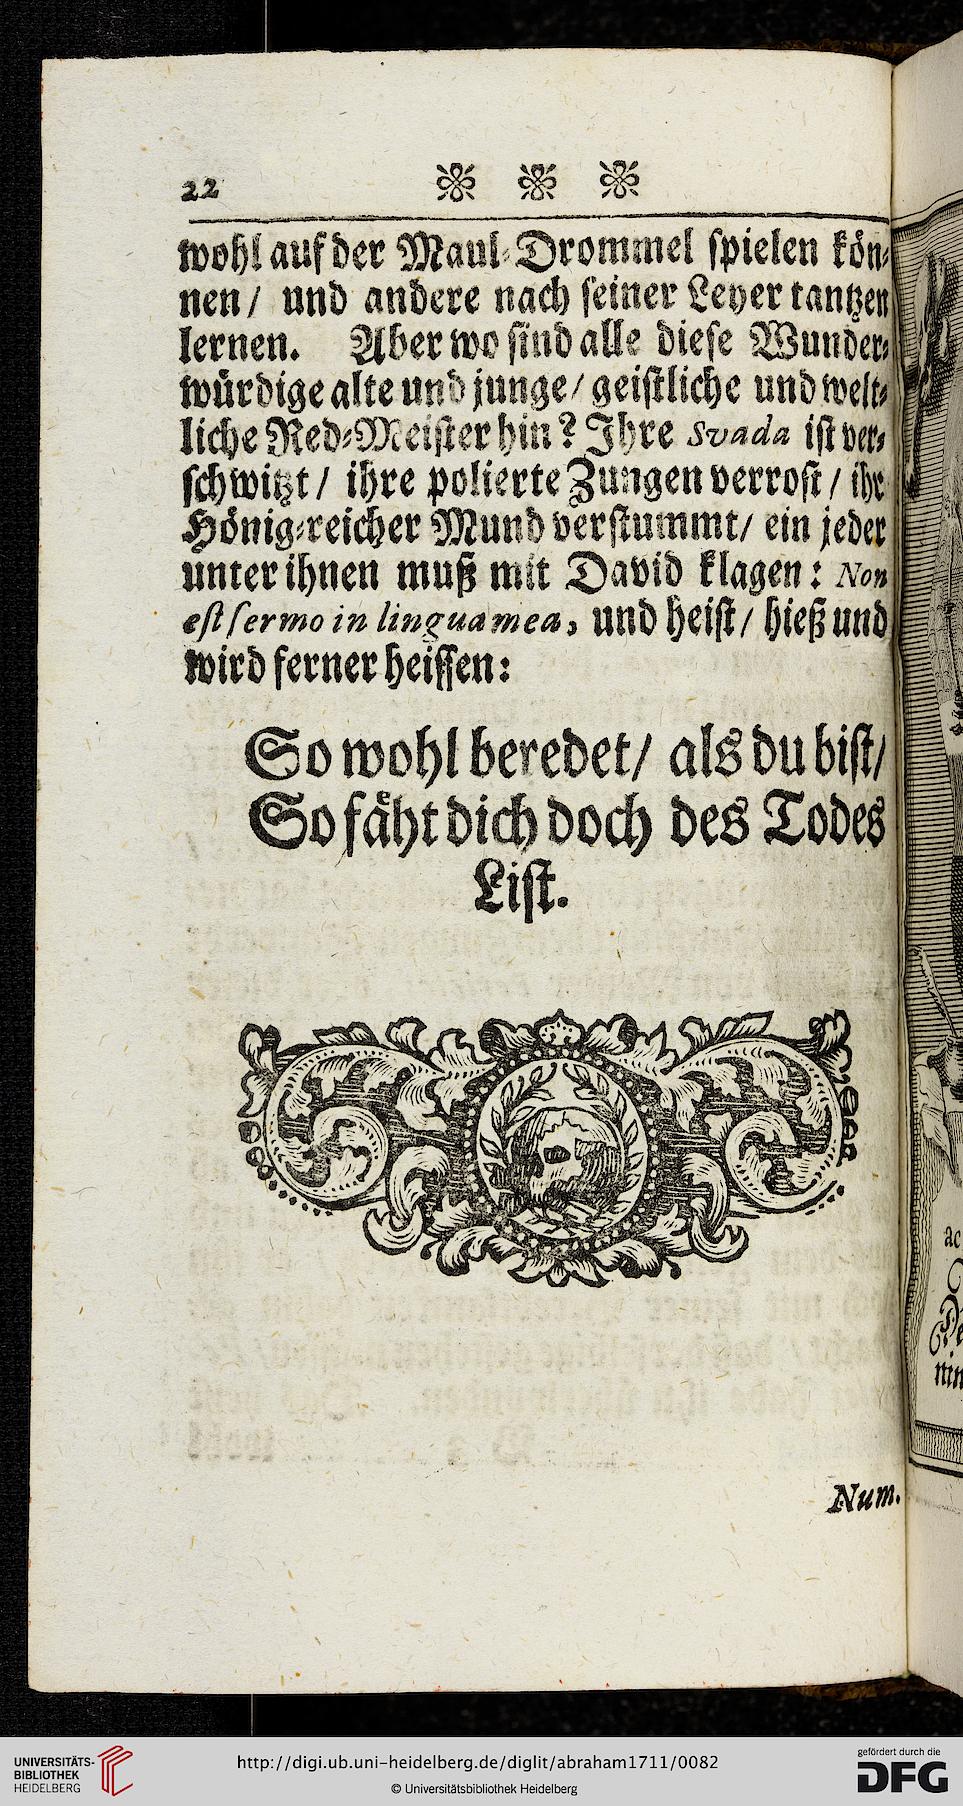 22
wohl auf der Maul-Drommel spielen kön-
nen / und andere nach seiner Leyer tantzen
lernen. Aber wo sind alle diese Wunder-
würdige alte und junge / geistliche und welt-
liche Red-Meister hin? Ihre Svada ist ver-
schwitzt / ihre polierte Zungen verrost / ihr
Hönig-reicher Mund verstummt / ein jeder
unter ihnen muß mit David klagen: Non
est sermo in lingua mea, und heist / hieß und
wird ferner heissen:
So wohl beredet / als du bist /
So fäht dich doch des Todes
List.
Num.
ac
nin
UNIVERSITÄTS-
BIBLIOTHEK
HEIDELBERG
http://digi.ub.uni-heidelberg.de/diglit/abraham1711/0082
© Universitätsbibliothek Heidelberg
gefördert durch die
DFG